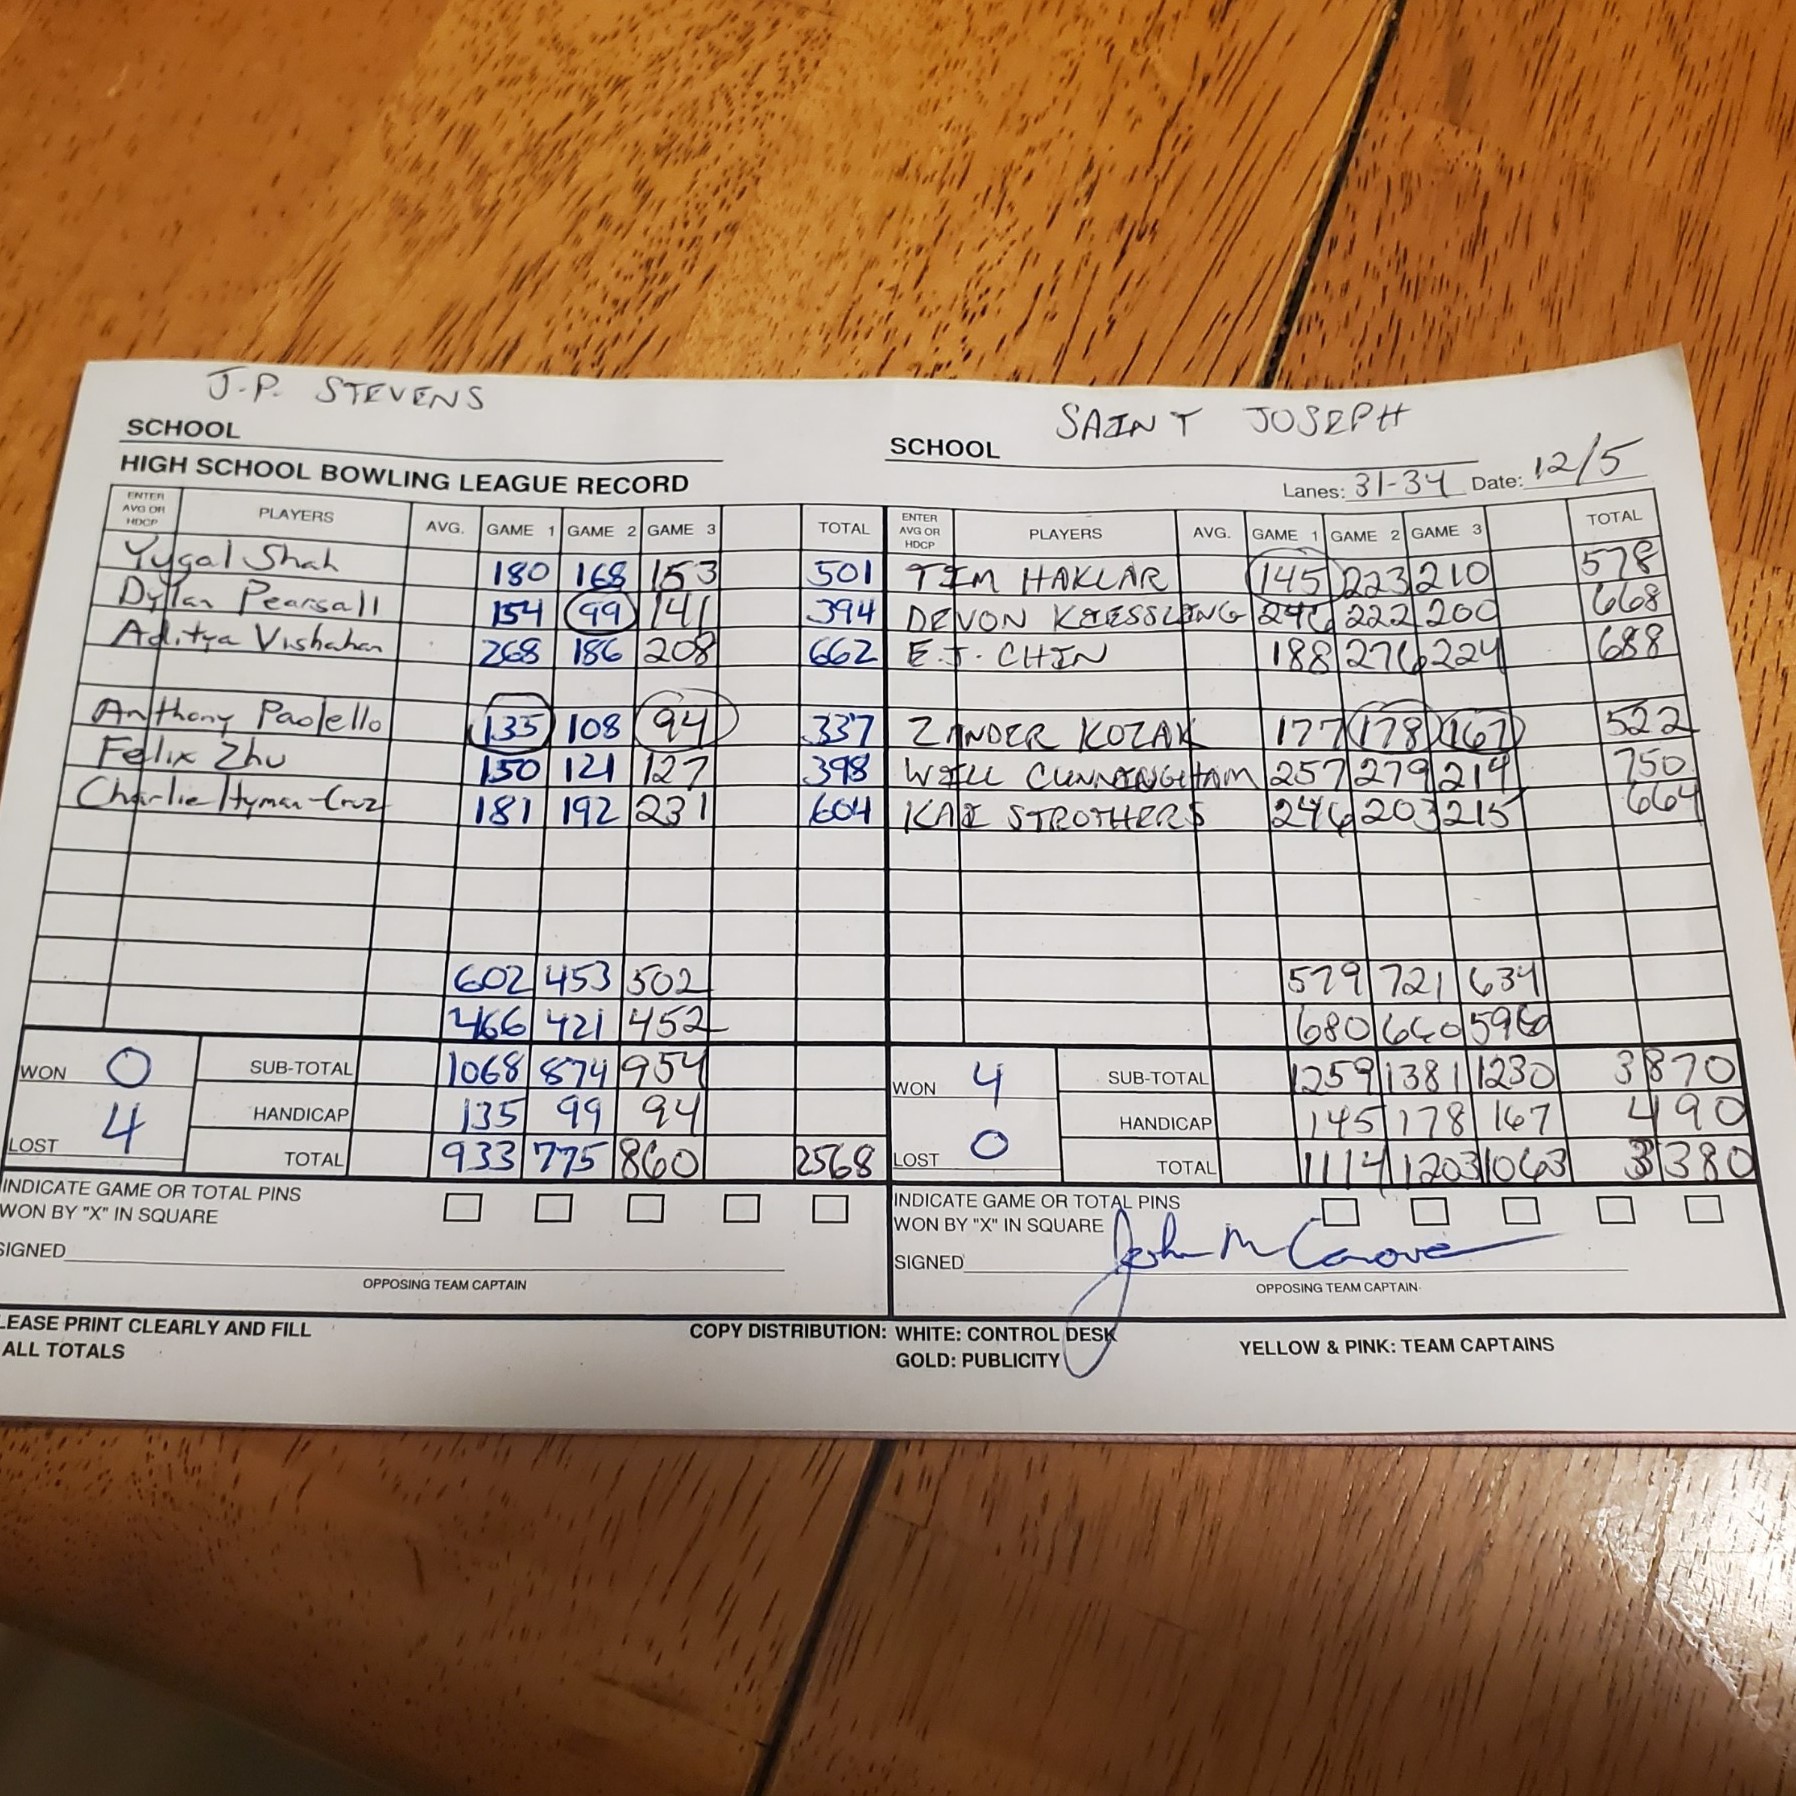 J.P. STEVENS
SCHOOL
HIGH SCHOOL BOWLING LEAGUE RECORD
ENTER AVG OR HDCP PLAYERS AVG. GAME 1 GAME 2 GAME 3 TOTAL
Yugal Shah 180 168 153 501
Dylan Pearsall 154 99 141 394
Aditya Vishahan 268 186 208 662
Anthony Paolello 135 108 94 337
Felix Zhu 150 121 127 398
Charlie Hyman-Cruz 181 192 231 604
602 453 502
466 421 452
WON 0 SUB-TOTAL 1068 874 954
HANDICAP 135 99 94
LOST 4 TOTAL 933 775 860 2568
INDICATE GAME OR TOTAL PINS
WON BY "X" IN SQUARE
SIGNED
OPPOSING TEAM CAPTAIN
SAINT JOSEPH
SCHOOL
Lanes: 31-34 Date: 12/5
ENTER AVG OR HDCP PLAYERS AVG. GAME 1 GAME 2 GAME 3 TOTAL
TIM HAKLAR 145 223 210 578
DEVON KOESSLING 246 222 200 668
E.J. CHIN 188 276 224 688
ZANDER KOZAK 177 178 167 522
WILL CUNNINGHAM 257 279 214 750
KAI STROTHERS 246 203 215 664
579 721 634
680 660 596
WON 4 SUB-TOTAL 1259 1381 1230 3870
HANDICAP 145 178 167 490
LOST 0 TOTAL 1114 1203 1063 3380
INDICATE GAME OR TOTAL PINS
WON BY "X" IN SQUARE
SIGNED John M
OPPOSING TEAM CAPTAIN
LEASE PRINT CLEARLY AND FILL
ALL TOTALS
COPY DISTRIBUTION: WHITE: CONTROL DESK YELLOW & PINK: TEAM CAPTAINS
GOLD: PUBLICITY